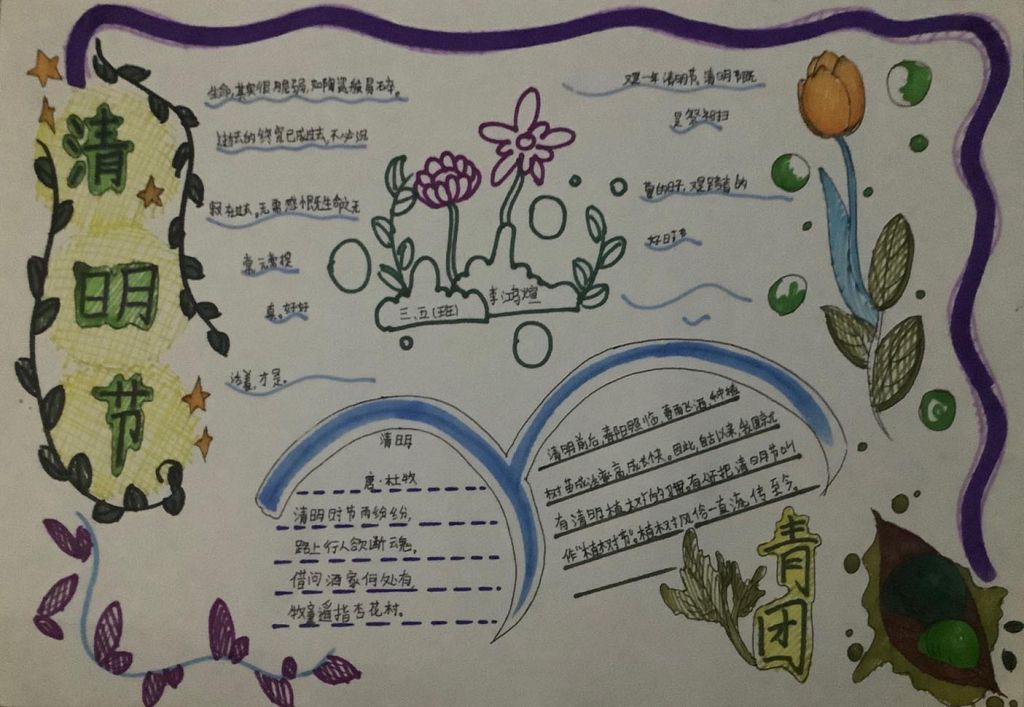 清明节
生命,其实很脆弱,如陶瓷般易碎。
过去的终究已成过去,不必说
假在过去,无需悔恨无生命之无
常,
真。好好
活着,才是。
又是一年清明节,清明节既
是祭祖扫
墓的日子,又是踏青的
好日子
三.五(班)
李鸿煊
清明
唐·杜牧
清明时节雨纷纷,
路上行人欲断魂。
借问酒家何处有,
牧童遥指杏花村。
清明前后,春阳照临,春雨飞洒,种植
树苗成活率高,成长快。因此,自古以来,我国就
有清明植树的习惯。有人还把清明节叫
作“植树节”。植树风俗一直流传至今。
青团